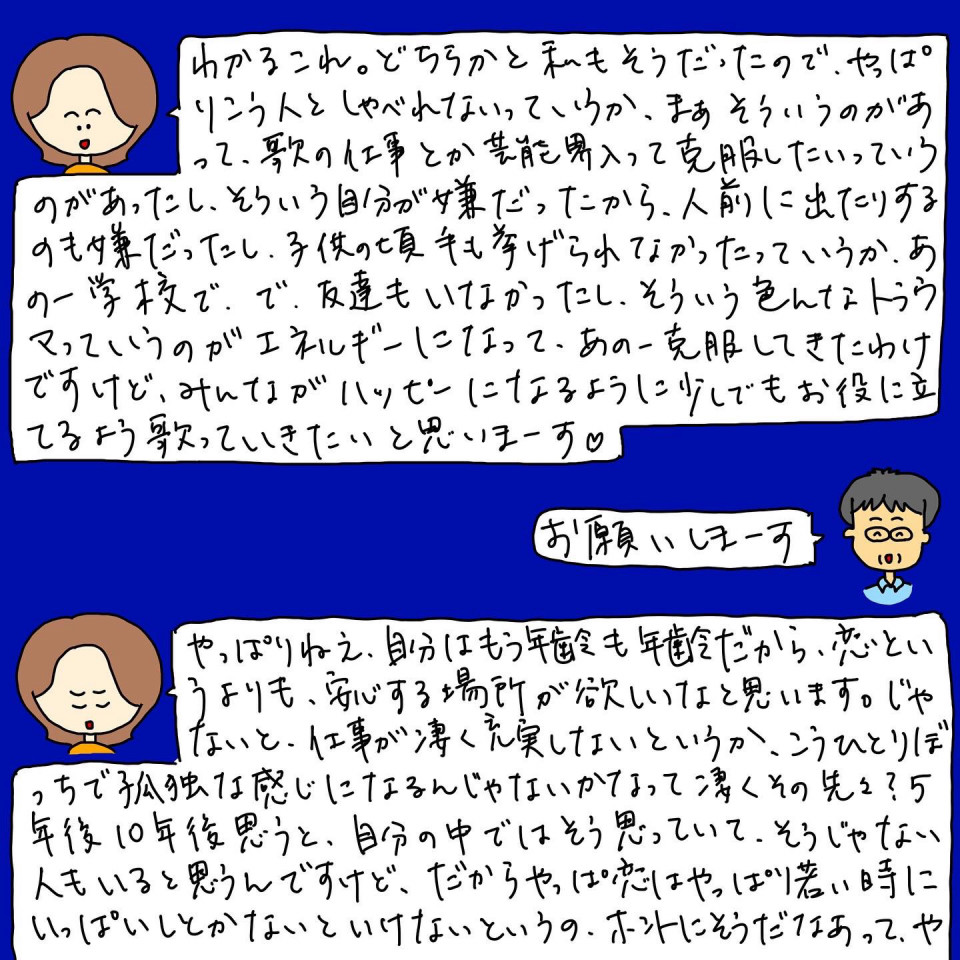 わかるこれ。どちらかと私もそうだったので、やっぱ
りこう人としゃべれないっていうか、まぁそういうのがあ
って、歌の仕事とか芸能界入って克服したいっていう
のがあったし、そういう自分が嫌だったから、人前に出たりする
のも嫌だったし、子供の頃手も挙げられなかったっていうか、あ
のー学校で、で、友達もいなかったし、そういう色んなトラウ
マっていうのがエネルギーになって、あのー克服してきたわけ
ですけど、みんながハッピーになるように少しでもお役に立
てるよう歌っていきたいと思いまーす♡
お願いしまーす
やっぱりねえ、自分はもう年齢も年齢だから、恋とい
うよりも、安心する場所が欲しいなと思います。じゃ
ないと、仕事が凄く充実しないというか、こうひとりぼ
っちで孤独な感じになるんじゃないかなって凄くその先々?5
年後10年後思うと、自分の中ではそう思っていて、そうじゃない
人もいると思うんですけど、だからやっぱ恋はやっぱり若い時に
いっぱいしとかないといけないというの、ホントにそうだなあって、や